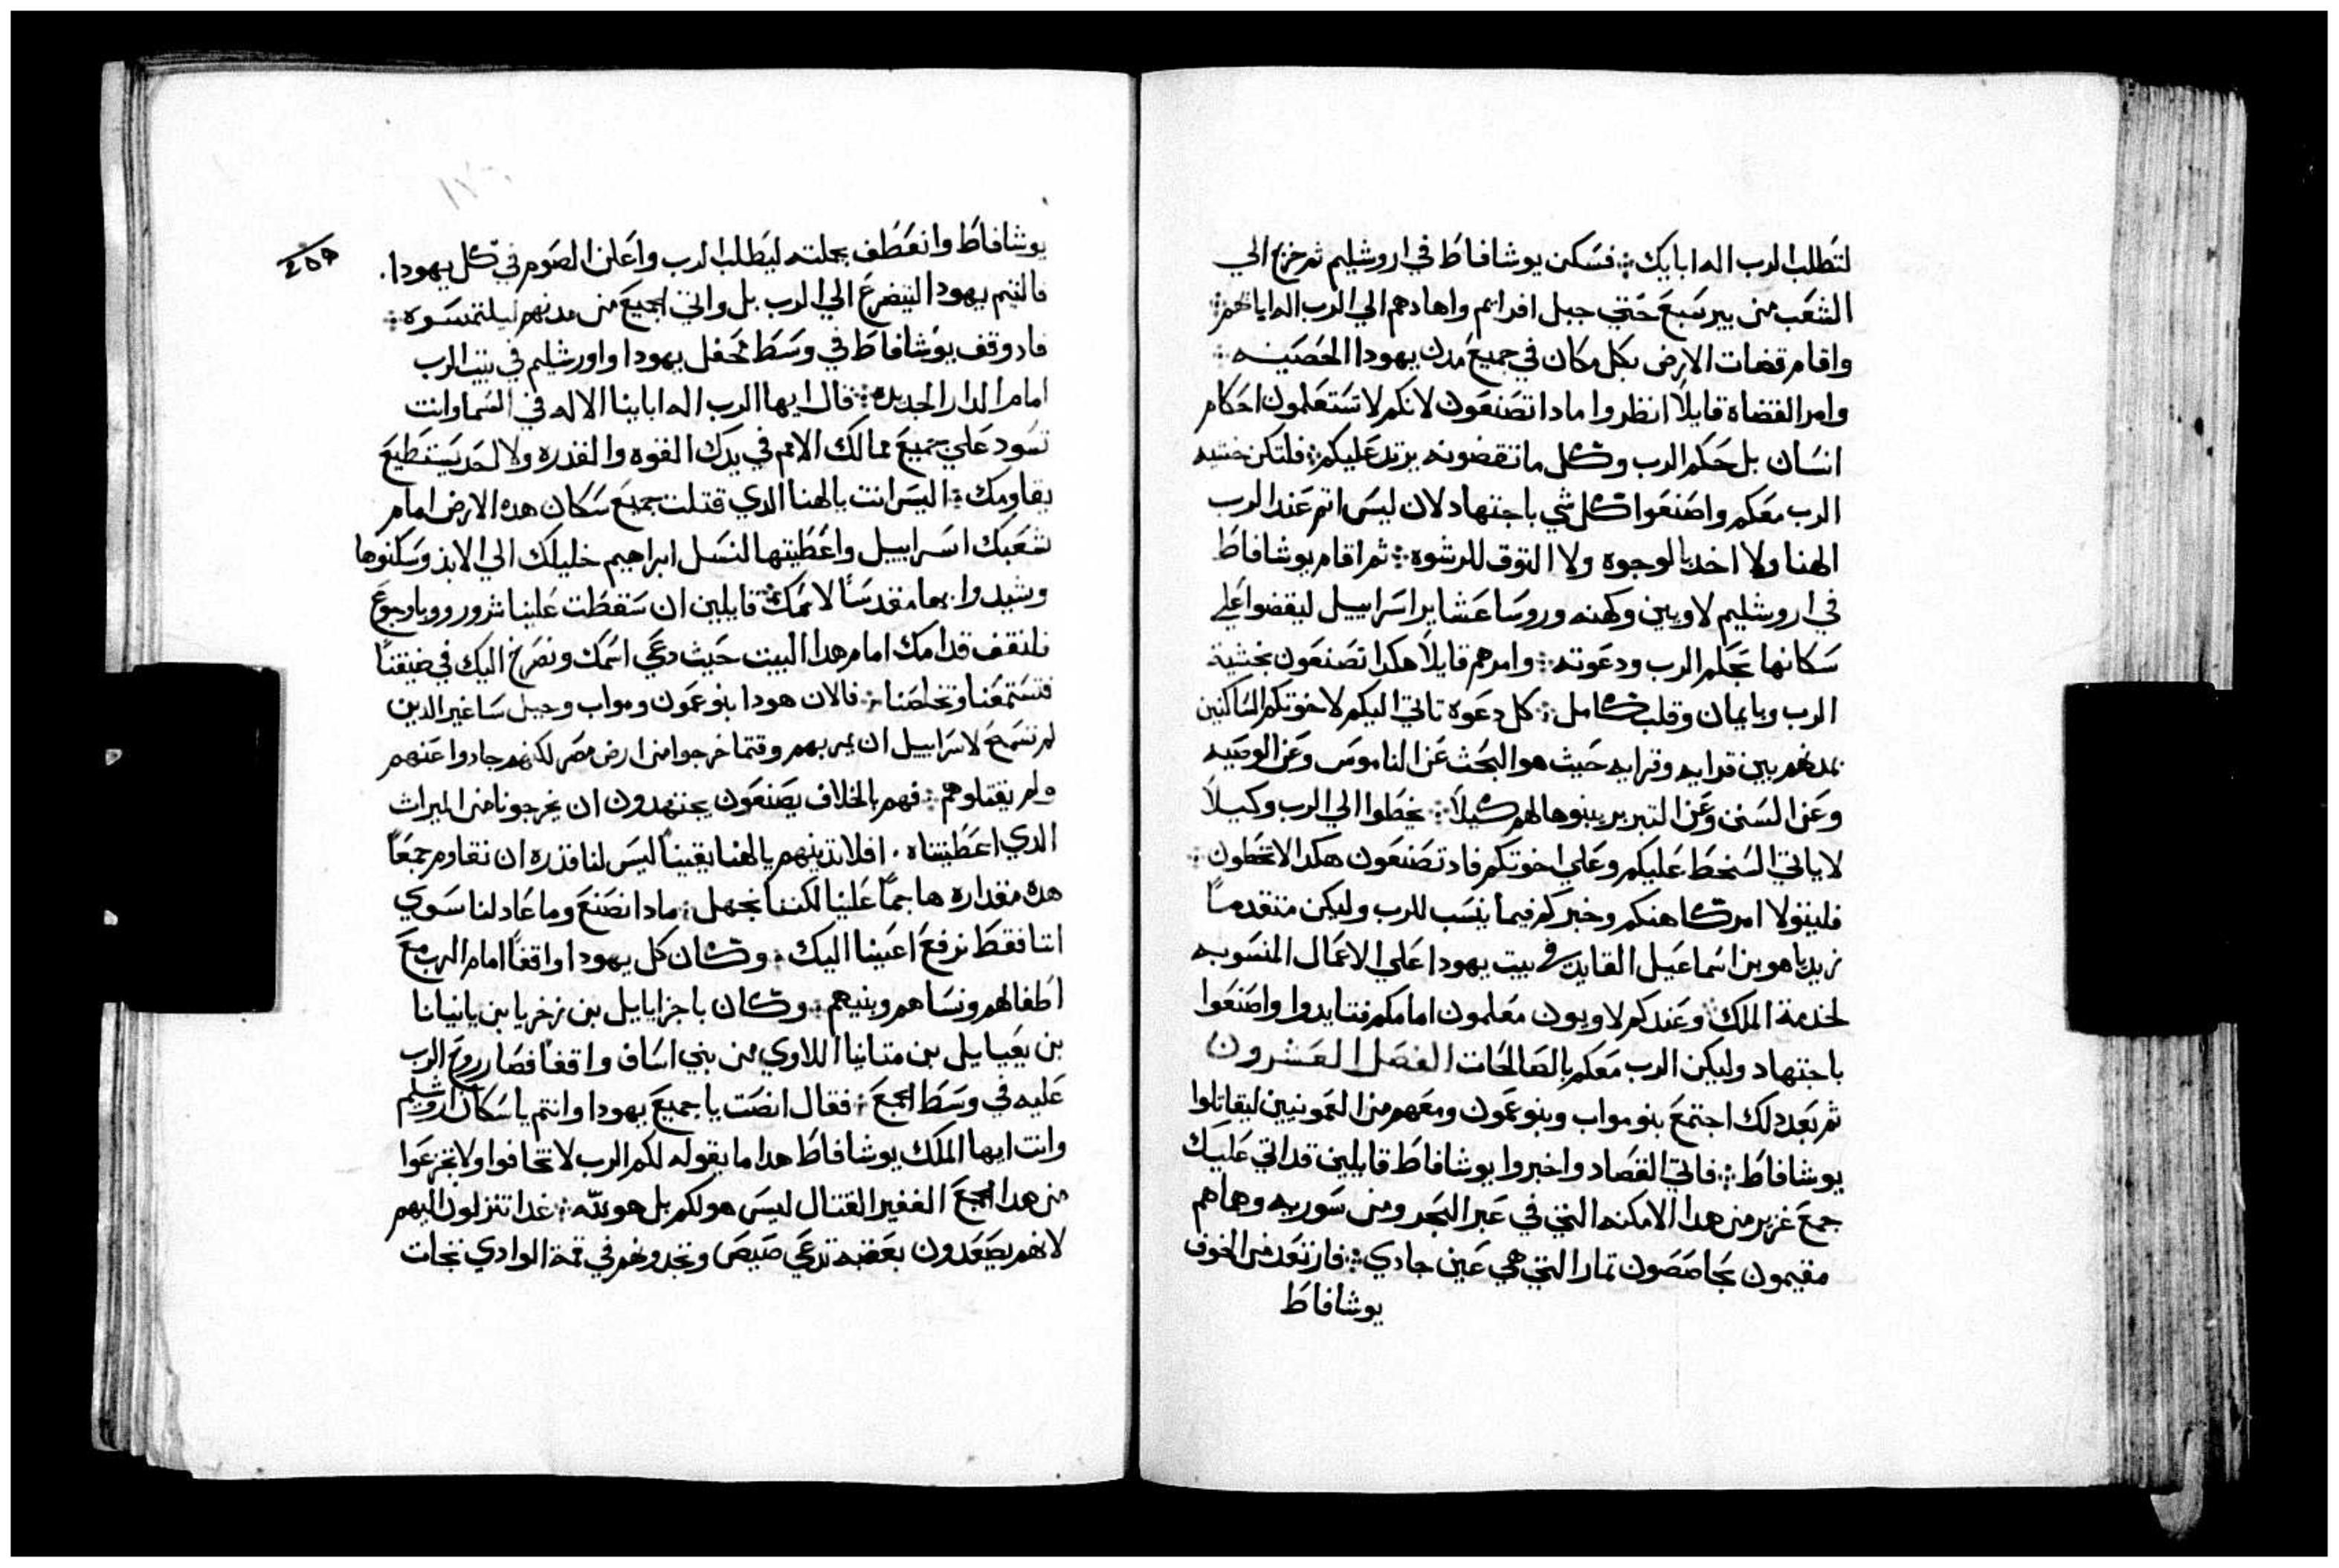 لتطلب الرب اله ابايك ⁘ فسكن يوشافاط في اروشليم ثم خرج الي
الشعب من بير سبع حتي جبل افرايم واهادهم الي الرب اله اباهم ⁘
واقام قضات الارض بكل مكان في جميع مدن يهودا الحصينه ⁘
وامر القضاة قايلاً انظروا مادا تصنعون لانكم لا تستعلمون احكام
انسان بل حكم الرب وكل ما تقضونه يرتد عليكم ⁘ فلتكن خشيه
الرب معكم واصنعوا كل شي باجتهاد لان ليس اتم عند الرب
الهنا ولا اخد بالوجوه ولا التوق للرشوه ⁘ ثم اقام يوشافاط
في اروشليم لاويين وكهنه وروسا عشاير اسراييل ليقضوا علي
سكانها بحكم الرب ودعوته ⁘ وامرهم قايلاً هكدا تصنعون بخشية
الرب وبايمان وقلب كامل ⁘ كل دعوه تاتي اليكم لاخوتكم الساكنين
بمدنهم بين قرايه وقرايه حيث هو البحث عن الناموس وعن الوصيه
وعن السنن وعن التبرير بينوها لهم كيلا ⁘ يخطوا الي الرب وكيلاً
لا ياتي السخط عليكم وعلي اخوتكم فاد تصنعون هكدا لا تخطون ⁘
فليتولا امركاهنكم وخبركم فيما ينسب للرب وليكن متقدماً
زبديا هو بن اسماعيل القايد في بيت يهودا علي الاعمال المنسوبه
لخدمة الملك ⁘ وعندكم لاويون معلمون امامكم فتايدوا واصنعوا
باجتهاد وليكن الرب معكم بالصالحات الفصل العشرون
ثم بعد دلك اجتمع بنو مواب وبنو عمون ومعهم من العمونيين ليقاتلوا
يوشافاط ⁘ فاتي القصاد واخبروا يوشافاط قايلين قد اتي عليك
جمع غزير من هدا الامكنه التي في عبر البحر ومن سوريه وها هم
مقيمون بحاصصون تمار التي هي عين جادي ⁘ فارتعد من الخوف
يوشافاط
٢٥٩
يوشافاط وانعطف بجملته ليطلب الرب واعلن الصوم في كل يهودا.
فالتيم يهودا ليتضرع الي الرب بل واتي الجميع من مدنهم ليلتمسوه ⁘
فاد وقف يوشافاط في وسط محفل يهودا واورشليم في بيت الرب
امام الدار الجديده ⁘ قال ايها الرب اله اباينا الاله في السما وانت
تسود علي جميع ممالك الامم في يدك القوه والقدره ولا احد يستطيع
يقاومك ⁘ اليس انت يا الهنا الدي قتلت جميع سكان هده الارض امام
شعبك اسراييل واعطيتها لنسل ابراهيم خليلك الي الابد وسكنوها
وشيدوا بها مقدساً لاسمك ⁘ قايلين ان سقطت علينا شرور ووبا وجوع
فلنقف قدامك امام هدا البيت حيث دعي اسمك ونصرخ اليك في ضيقتنا
فتستمعنا وتخلصنا ⁘ فالان هودا بنو عمون ومواب وجبل ساغير الدين
لم تسمح لاسراييل ان يمر بهم وقتما خرجوا من ارض مصر لكنهم حادوا عنهم
ولم يقتلوهم ⁘ فهم بالخلاف يصنعون يجتهدون ان يخرجونا من الميراث
الدي اعطيتناه . افلا تدينهم يا الهنا يقيناً ليس لنا قدره ان نقاوم جمعاً
هده مقداره هاجماً علينا لكننا نجهل ⁘ مادا نصنع وما عاد لنا سوي
اننا فقط نرفع اعيننا اليك ⁘ وكان كل يهودا واقفاً امام الرب مع
اطفالهم ونساهم وبنيهم ⁘ وكان باجزاياييل بن زخريا بن يانيانا
بن يعياييل بن متانيا اللاوي من بني اساف واقفاً فصار روح الرب
عليه في وسط الجمع ⁘ فقال انصت يا جميع يهودا وانتم يا سكان اروشليم
وانت ايها الملك يوشافاط هدا ما يقوله لكم الرب لا تخافوا ولا تجزعوا
من هدا الجمع الغفير القتال ليس هو لكم بل هو لله ⁘ غدا تنزلون اليهم
لانهم يصعدون بعقبه تدعي صيص وتجدونهم في قمة الوادي تجات